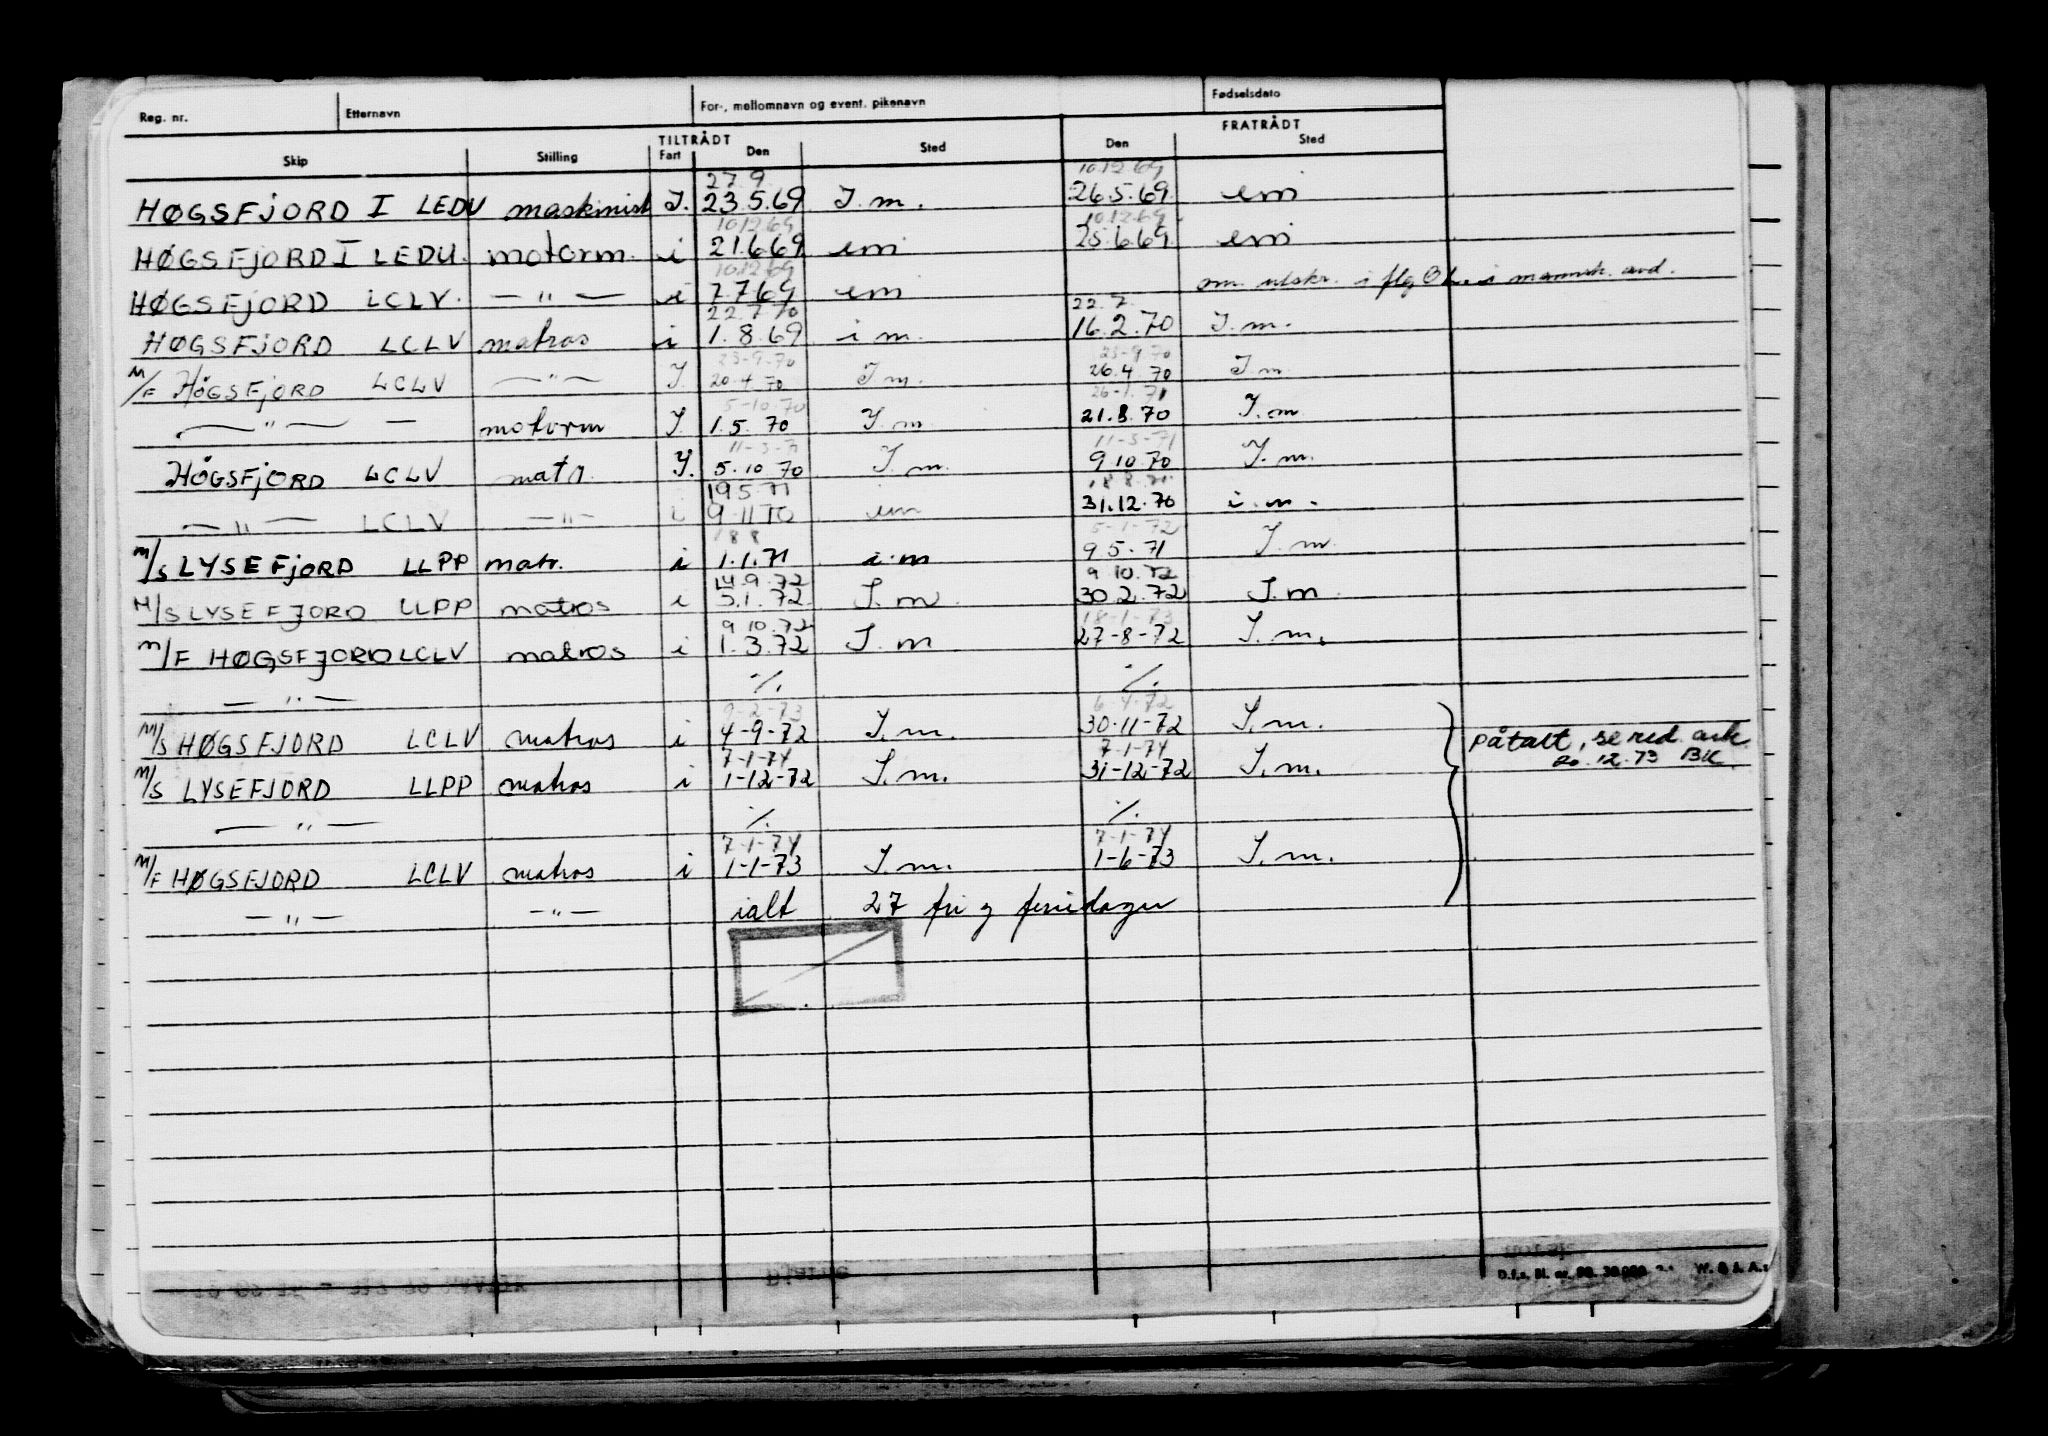 Reg. nr. Etternavn For-, mellomnavn og event. pikenavn Fødselsdato
TILTRÅDT FRATRÅDT
Skip Stilling Fart Den Sted Den Sted
27.9. 10.12.69
HØGSFJORD I LEDU maskinist I. 23.5.69 I.m. 26.5.69 em
10.12.69 10.12.69
HØGSFJORD I LEDU. motorm. i 21.6.69 em 25.6.69 em
10.12.69
HØGSFJORD LCLV. — " — i 7.7.69 em om utskr. i flg O.L. i mannsk. avd.
22.7.70 22.7.
HØGSFJORD LCLV matros i 1.8.69 i m. 16.2.70 I.m.
23-9-70 23-9-70
M/F HÖGSFJORD LCLV — " — I. 20.4.70 I m. 26.4.70 I.m
5-10-70 26-1-71
— " — — motorm I. 1.5.70 I.m 21.8.70 I.m
11-3-71 11-3-71
HÖGSFJORD LCLV matr. I. 5.10.70 I m. 9.10.70 I.m.
19.5.71 18.8.71
— " — LCLV — " — i 9.11.70 em 31.12.70 i.m.
18.8 5-1-72
M/S LYSEFJORD LLPP matr. i 1.1.71 i.m 9.5.71 I.m
14.9.72 9.10.72
M/S LYSEFJORD LLPP matros i 5.1.72 I.m 30.2.72 I.m
9.10.72 18-1-73
M/F HØGSFJORD LCLV matros i 1.3.72 I.m 27-8-72 I.m.
— " — ./. ./.
9-2-73 6-4-72
M/S HØGSFJORD LCLV matros i 4-9-72 I.m. 30-11-72 I.m. påtalt, se red. ark.
7-1-74 7-1-74 20.12.73 BK
M/S LYSEFJORD LLPP matros i 1-12-72 I.m. 31-12-72 I.m.
— " — ./. ./.
7-1-74 7-1-74
M/F HØGSFJORD LCLV matros i 1-1-73 I.m. 1-6-73 I.m.
— " — — " — ialt 27 fri og feriedager
D.f.s. Bl. nr. W. & A.